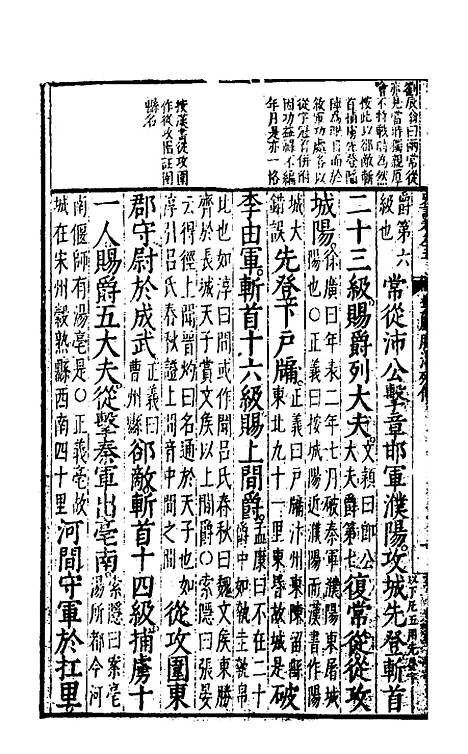 劉辰翁曰兩常從
亦見當時獨親原
會不持戟時為然
按此以卻敵斬
首捕虜先登陷
陣為眼目而於
敘軍功處各以
從字冠首併
因功益祿不編
年月是亦一格
按漢書從攻圉
作從攻
縣名
爵第六級也常從沛公擊章邯軍濮陽攻城先登斬首
二十三級賜爵列大夫文穎曰即公大夫爵第七復常從從攻
城陽徐廣曰年表二年七月破秦軍濮陽東屠城陽也○正義曰按城陽近濮陽而漢書作陽
城大錯誤先登下戶牖正義曰戶牖汴州東陳留縣東北九十一里東昏故城是破
李由軍斬首十六級賜上間爵孟康曰不在二十爵中如執圭執帛
比也如淳曰間或作聞呂氏春秋曰魏文侯東勝齊於長城天子賞文侯以上聞○索隱曰張晏
云得徑上聞晉灼曰名通於天子也如淳引呂氏春秋證上聞音中間之間從攻圍東
郡守尉於成武正義曰曹州縣卻敵斬首十四級捕虜十
一人賜爵五大夫從擊秦軍出亳南索隱曰案亳湯所都今河
南偃師有湯亳是○正義亳故城在宋州穀熟縣西南四十里河間守軍於杠里